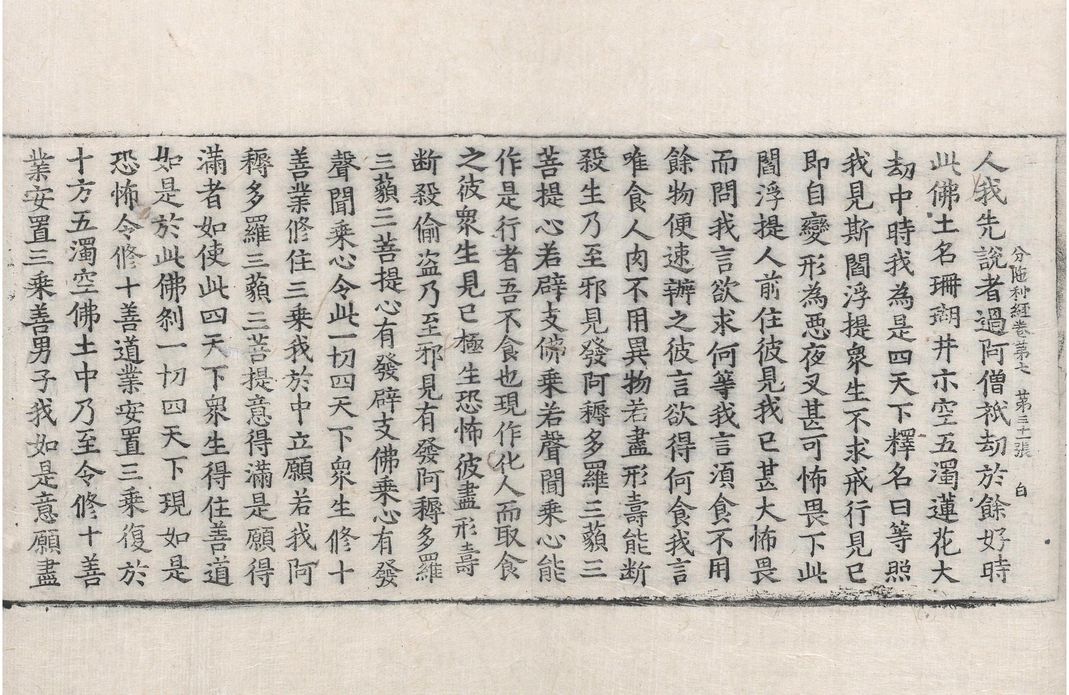 人我先說者過阿僧祇劫於餘好時
分陁利經卷第七 第三十一張 白
此佛土名珊瑚井亦空五濁蓮花大
劫中時我為是四天下釋名曰等照
我見斯閻浮提眾生不求戒行見已
即自變形為惡夜叉甚可怖畏下此
閻浮提人前住彼見我已甚大怖畏
而問我言欲求何等我言須食不用
餘物便速辦之彼言欲得何食我言
唯食人肉不用異物若盡形壽能断
殺生乃至邪見發阿耨多羅三藐三
菩提心若辟支佛乘若聲聞乘心能
作是行者吾不食也現作化人而取食
之彼眾生見已極生恐怖彼盡形壽
断殺偷盜乃至邪見有發阿耨多羅
三藐三菩提心有發辟支佛乘心有發
聲聞乘心令此一切四天下眾生修十
善業修住三乘我於中立願若我阿
耨多羅三藐三菩提意得滿是願得
滿者如使此四天下眾生得住善道
如是於此佛刹一切四天下現如是
恐怖令修十善道業安置三乘復於
十方五濁空佛土中乃至令修十善
業安置三乘善男子我如是意願盡